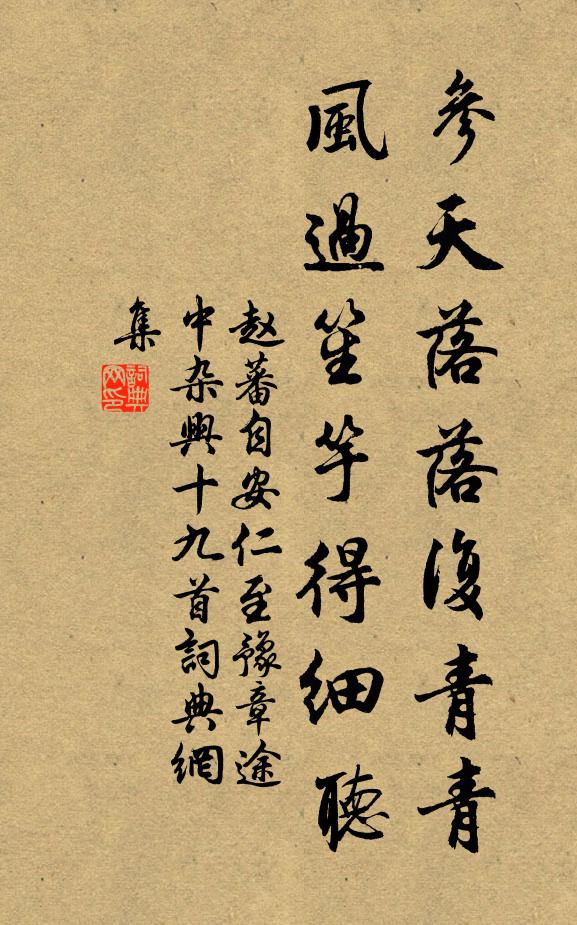 參天落落復青青
風過笙竽得細聽
赵蕃自安仁至豫章途
中杂興十九首詞典網
集
詞典網印